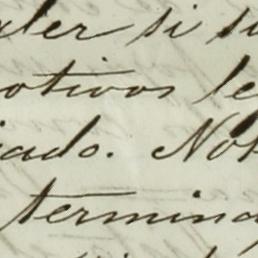 der si su
otivos le
iado. Not
termina